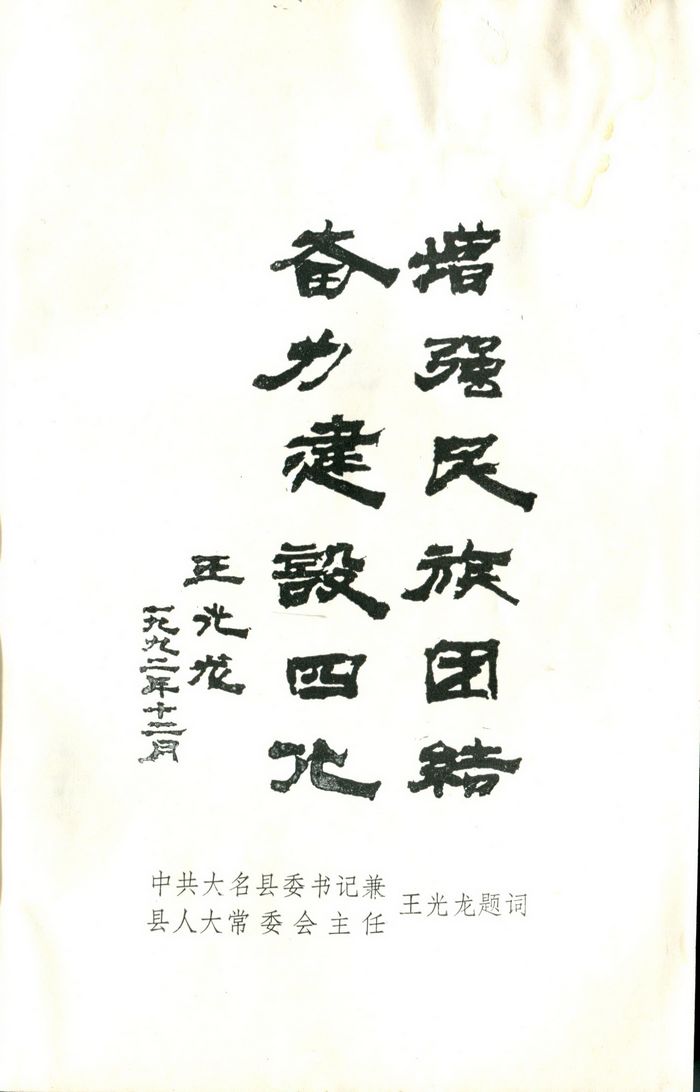 增强民族团结
奋力建設四化
王光龙
一九九二年十二月
中共大名县委书记兼
县人大常委会主任
王光龙题词